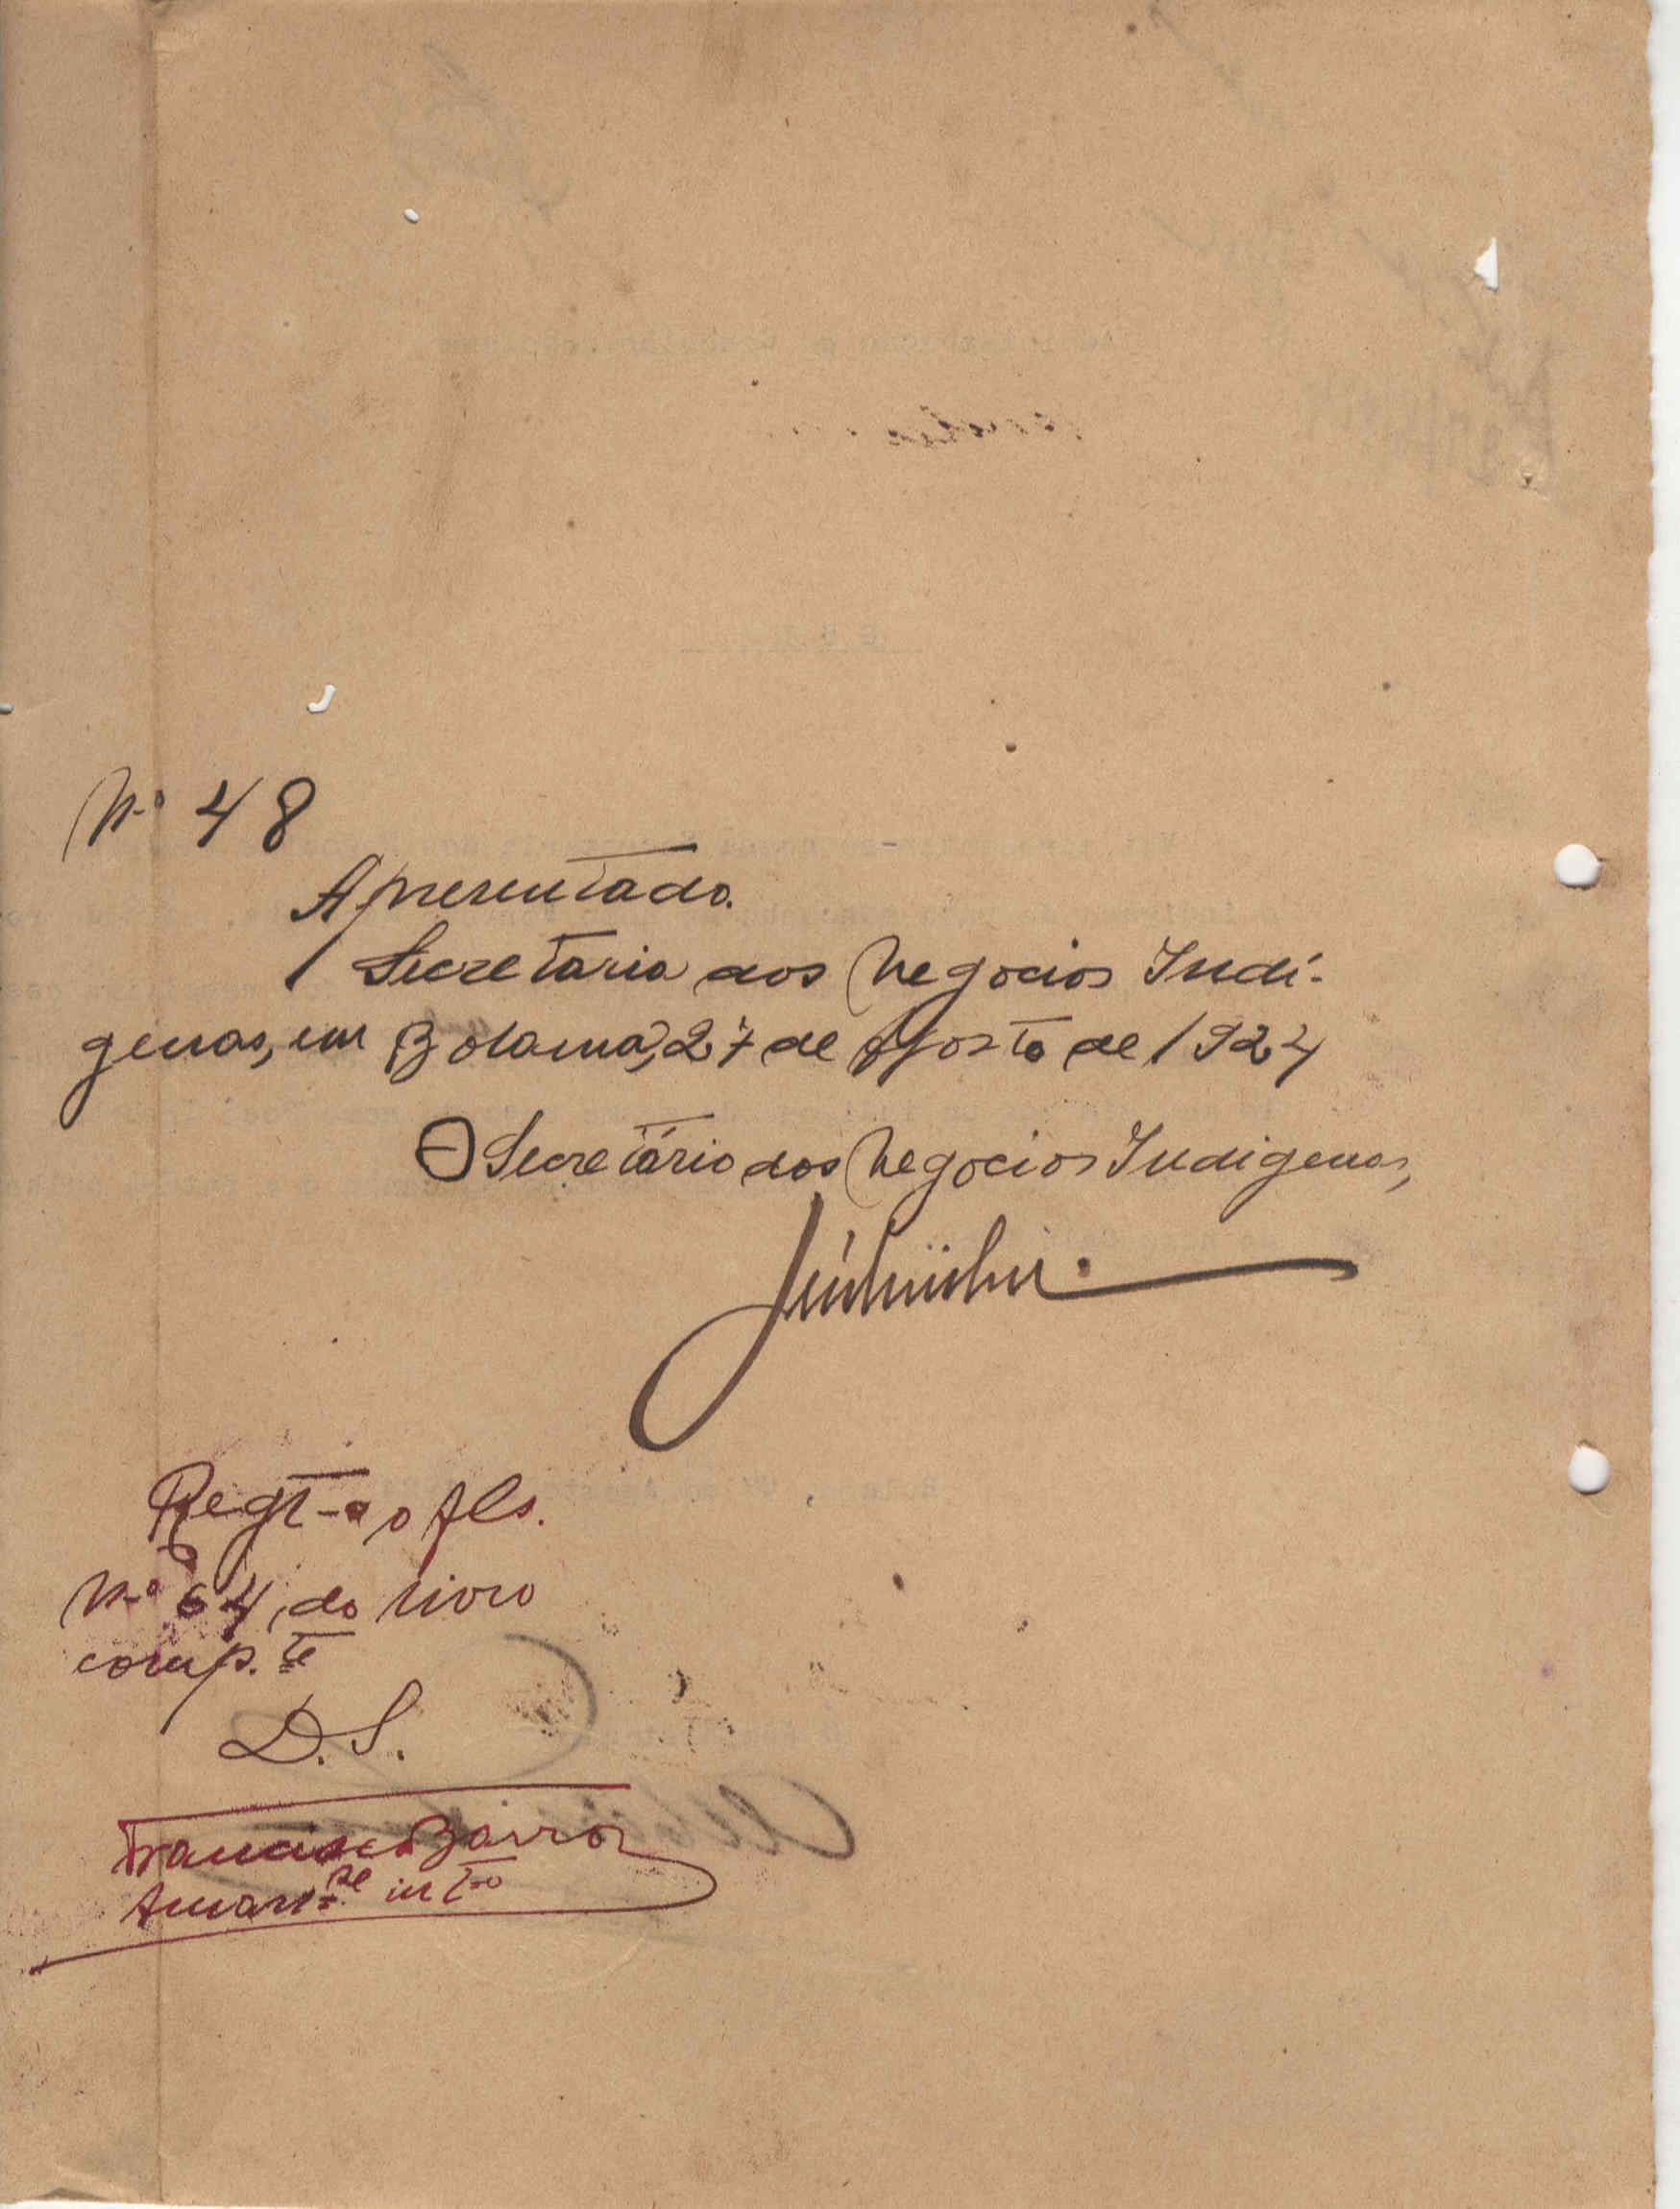 Nº 48
Apresentado.
Secretaria dos Negocios Indi-
genas, em Bolama, 27 de Agosto de 1924
O Secretário dos Negocios Indigenas,
Regt-o o fls.
Nº 64, do livro
comp.te
D.S.
Francisco Barros
Aman.se int-o